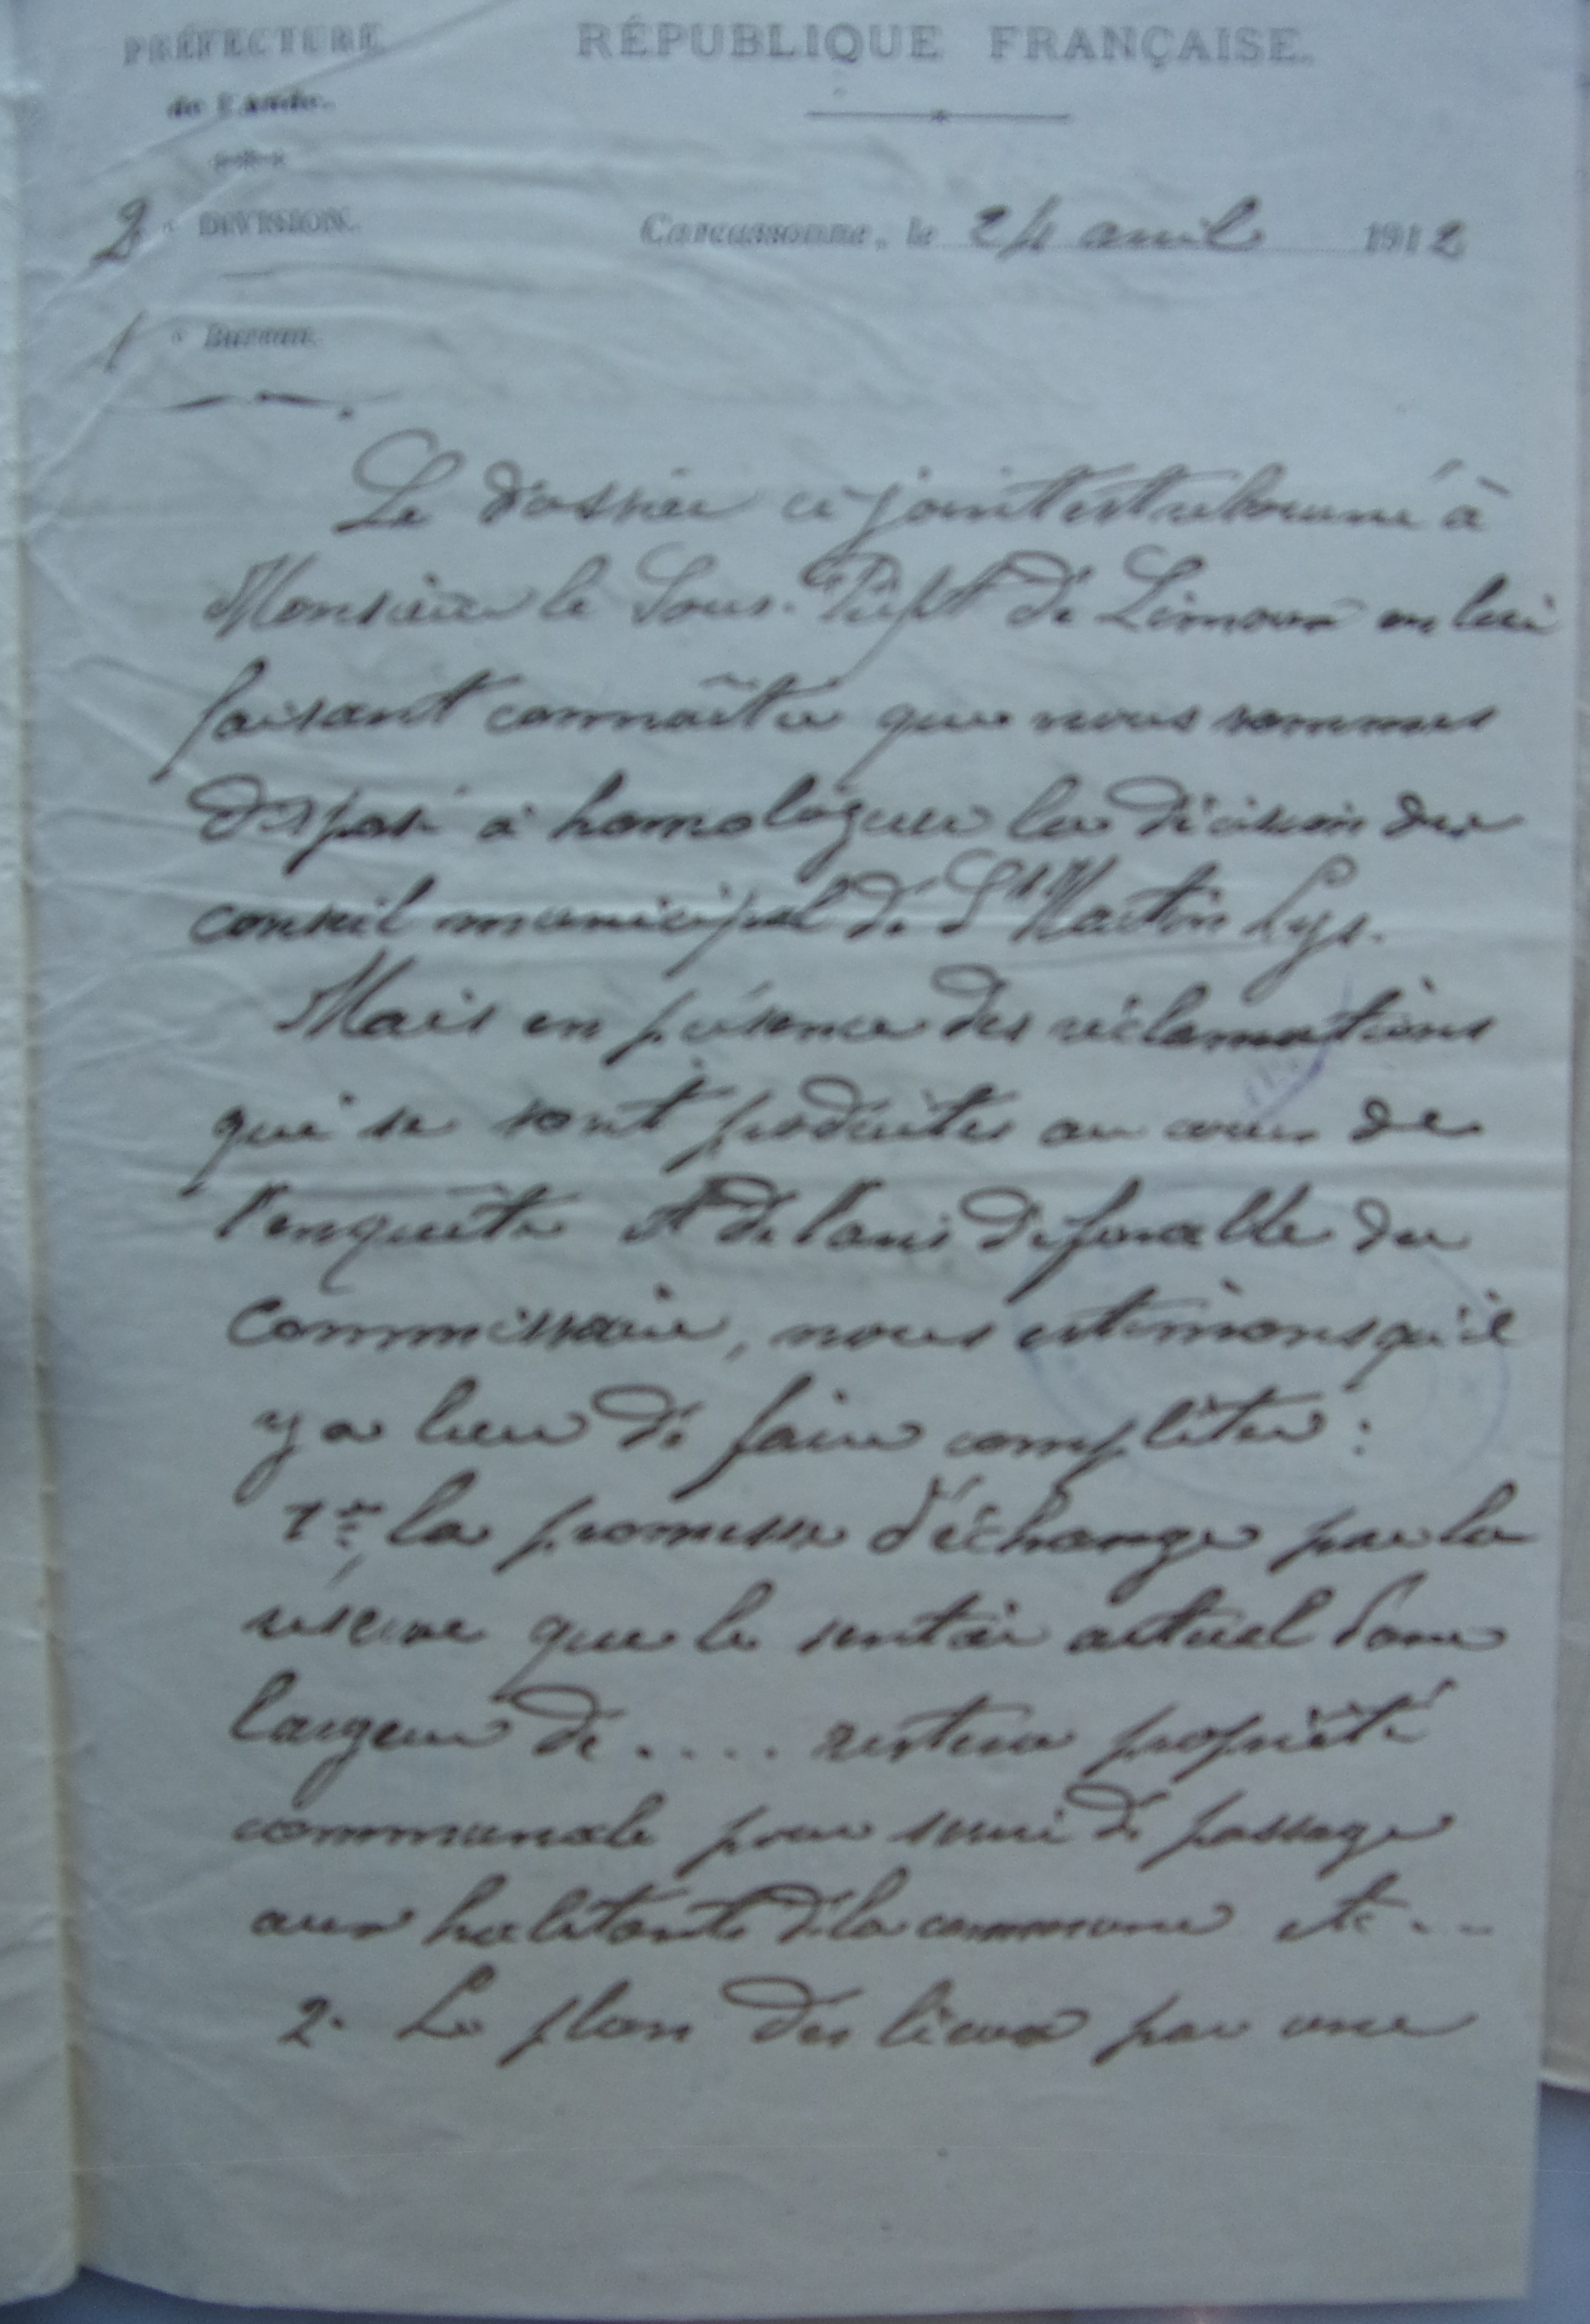 PRÉFECTURE
RÉPUBLIQUE FRANÇAISE.
de l'Aude.
2e DIVISION.
Carcassonne, le 24 avril 1912
1e Bureau.
Le dossier ci joint est retourné à
Monsieur le Sous-Préfet de Limoux en lui
faisant connaître que nous sommes
disposé à homologuer la décision du
conseil municipal de St Martin Lys.
Mais en présence des réclamations
qui se sont produites au cours de
l'enquête et de l'avis défavorable du
Commissaire, nous estimons qu'il
y a lieu de faire compléter :
1er la promesse d'échange par la
réserve que le sentier actuel d'une
largeur de .... restera propriété
communale pour servir de passage
aux habitants de la commune etc...
2. Le plan des lieux par une